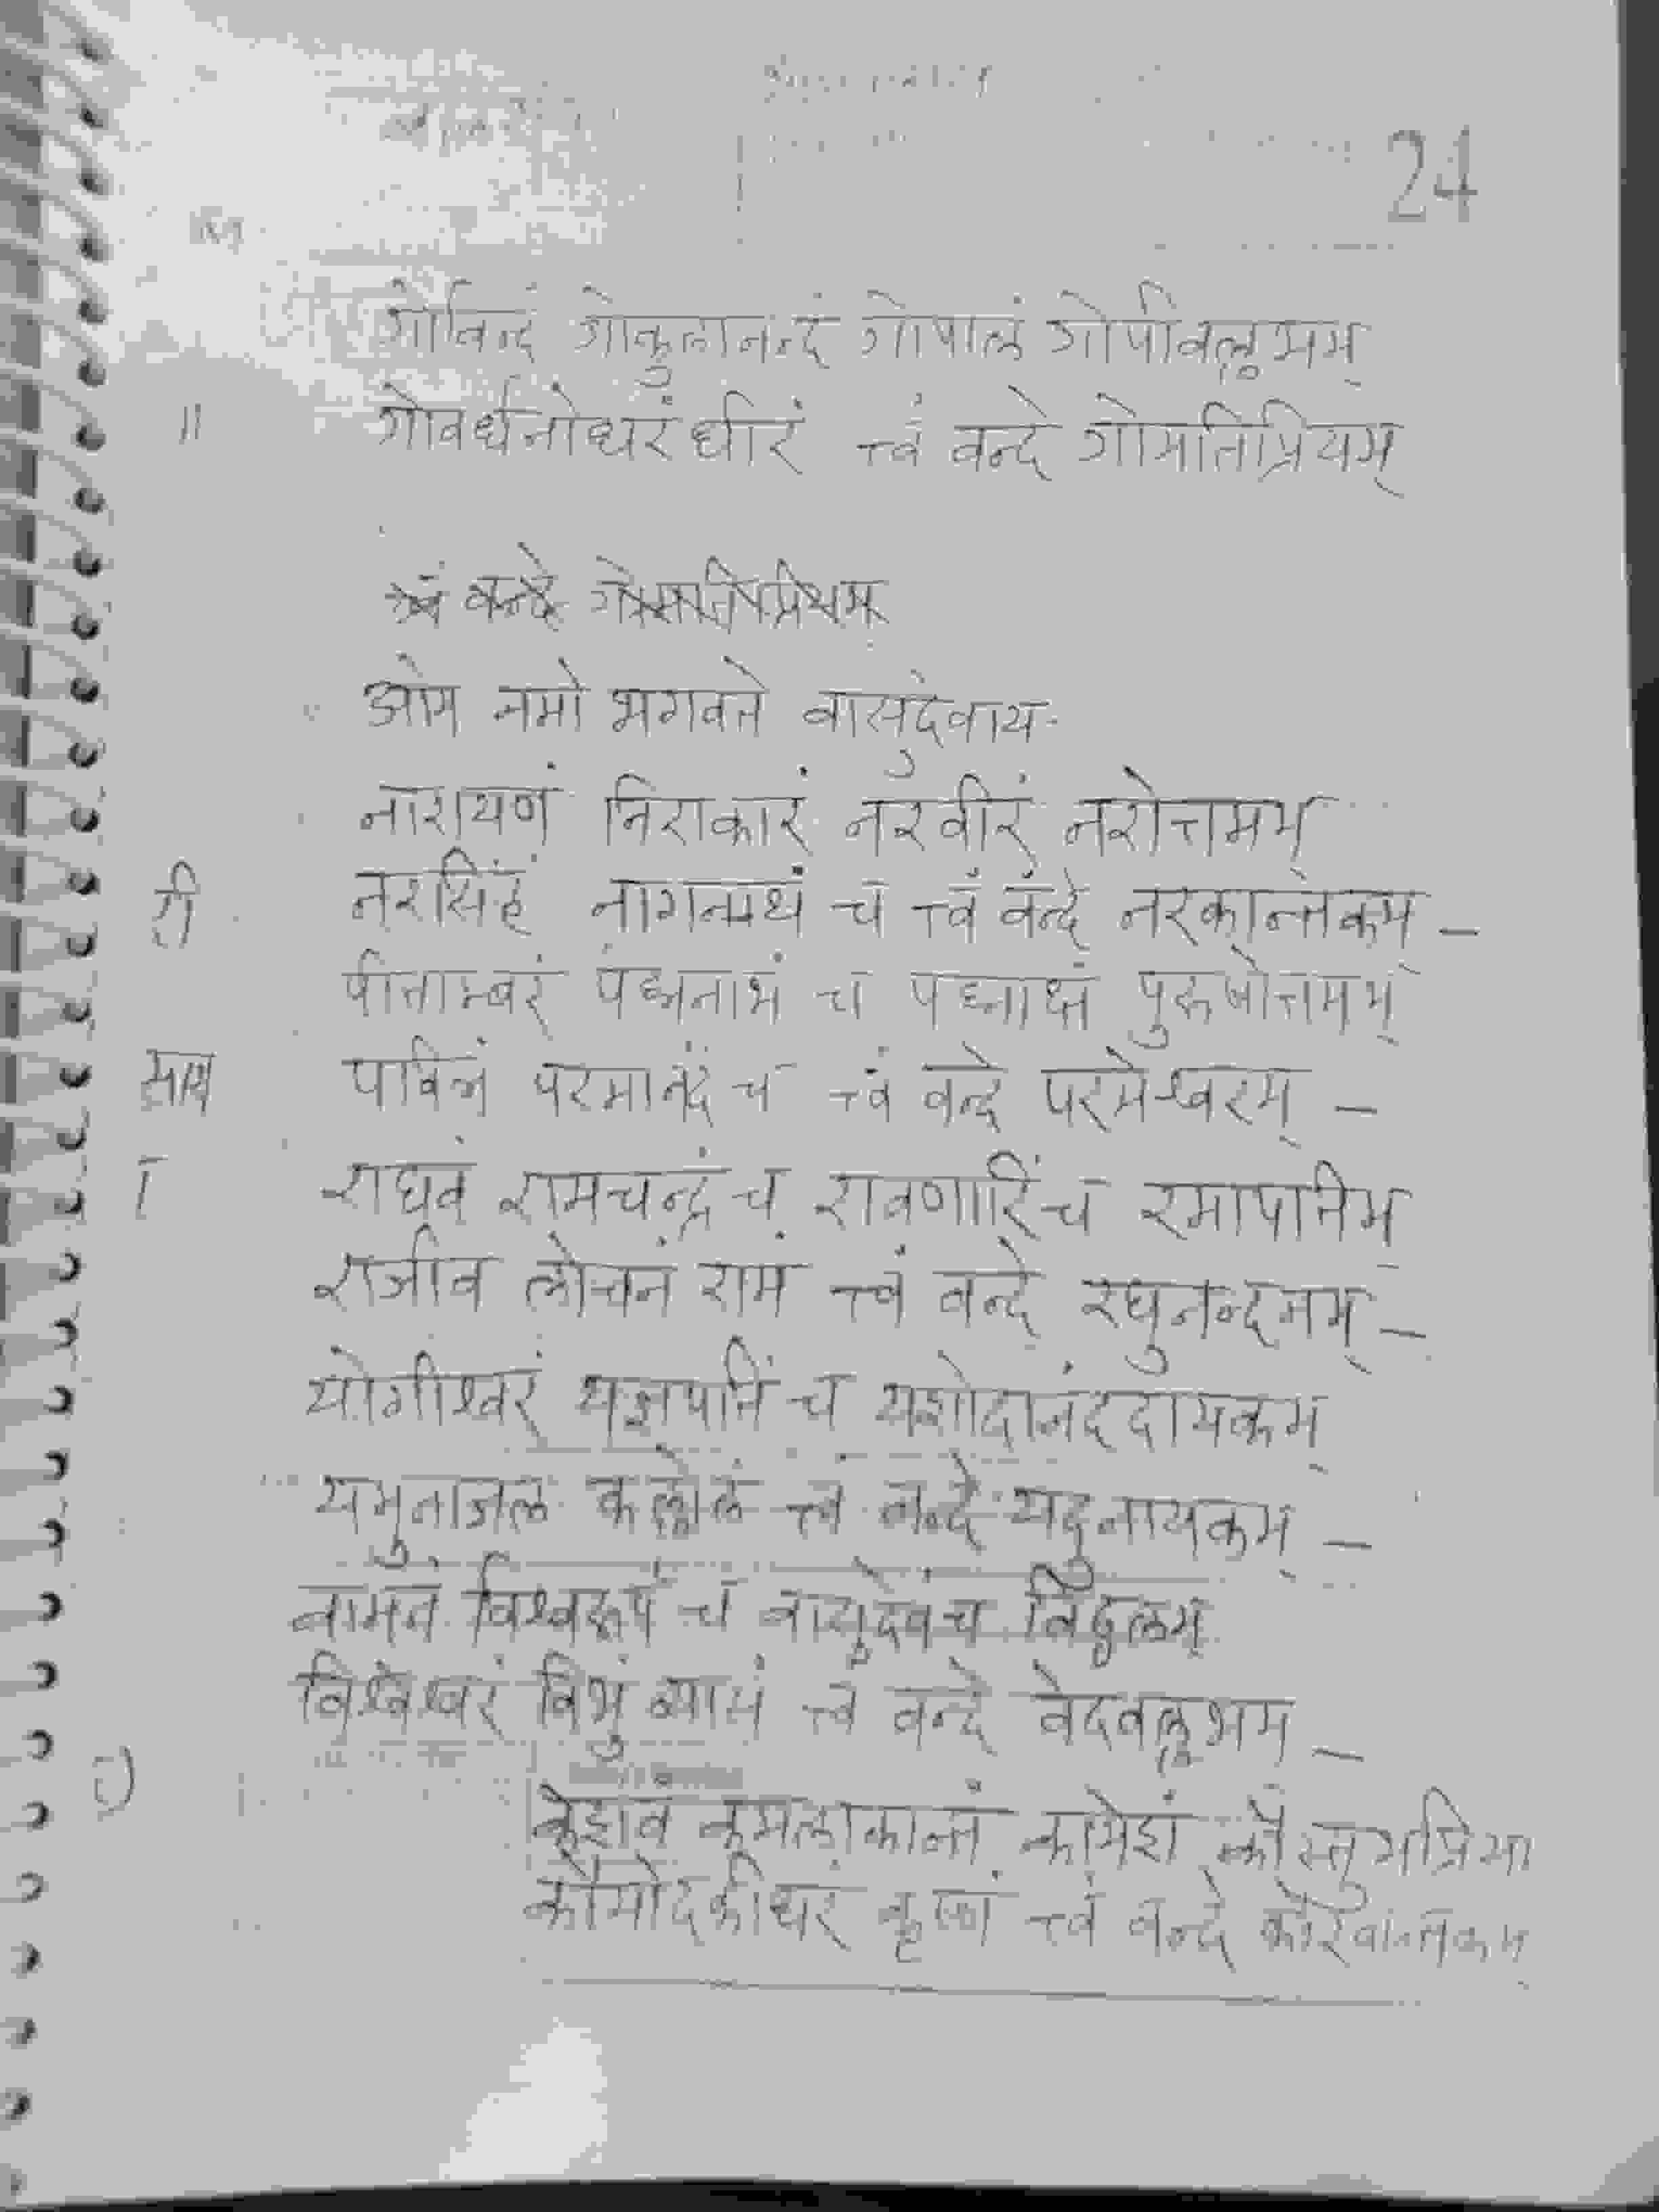 24
गोविन्दं गोकुलानन्दं गोपालं गोपीवल्लभम्
॥ गोवर्धनोधरं धीरं त्वं वन्दे गोमतिप्रियम्
त्वं वन्दे गोमतिप्रियम्
ओम नमो भगवते वासुदेवाय
नारायणं निराकारं नरवीरं नरोत्तमम्
री नरसिंहं च त्वं वन्दे नरकान्तकम् –
पीताम्बरं पद्मनाभं च पद्माक्षं पुरुषोत्तमम्
साथ पवित्रं परमानंदं च त्वं वन्दे परमेश्वरम् –
राघवं रामचन्द्रं च रावणारिं च रमापतिम्
राजीव लोचनं रामं त्वं वन्दे रघुनन्दनम् –
योगीश्वरं यज्ञपतिं च यशोदानंददायकम्
यमुनाजल कल्लोलं त्वं वन्दे यदुनायकम् –
वामनं विश्वरूपं च वासुदेवं च विठ्ठलम्
विश्वेश्वरं विभुं व्यासं त्वं वन्दे वेदवल्लभम –
केशव कमलाकान्तं कामेशं कौस्तुभप्रिया
कौमोदकीधरं कृष्णं त्वं वन्दे कौरवान्तकम्